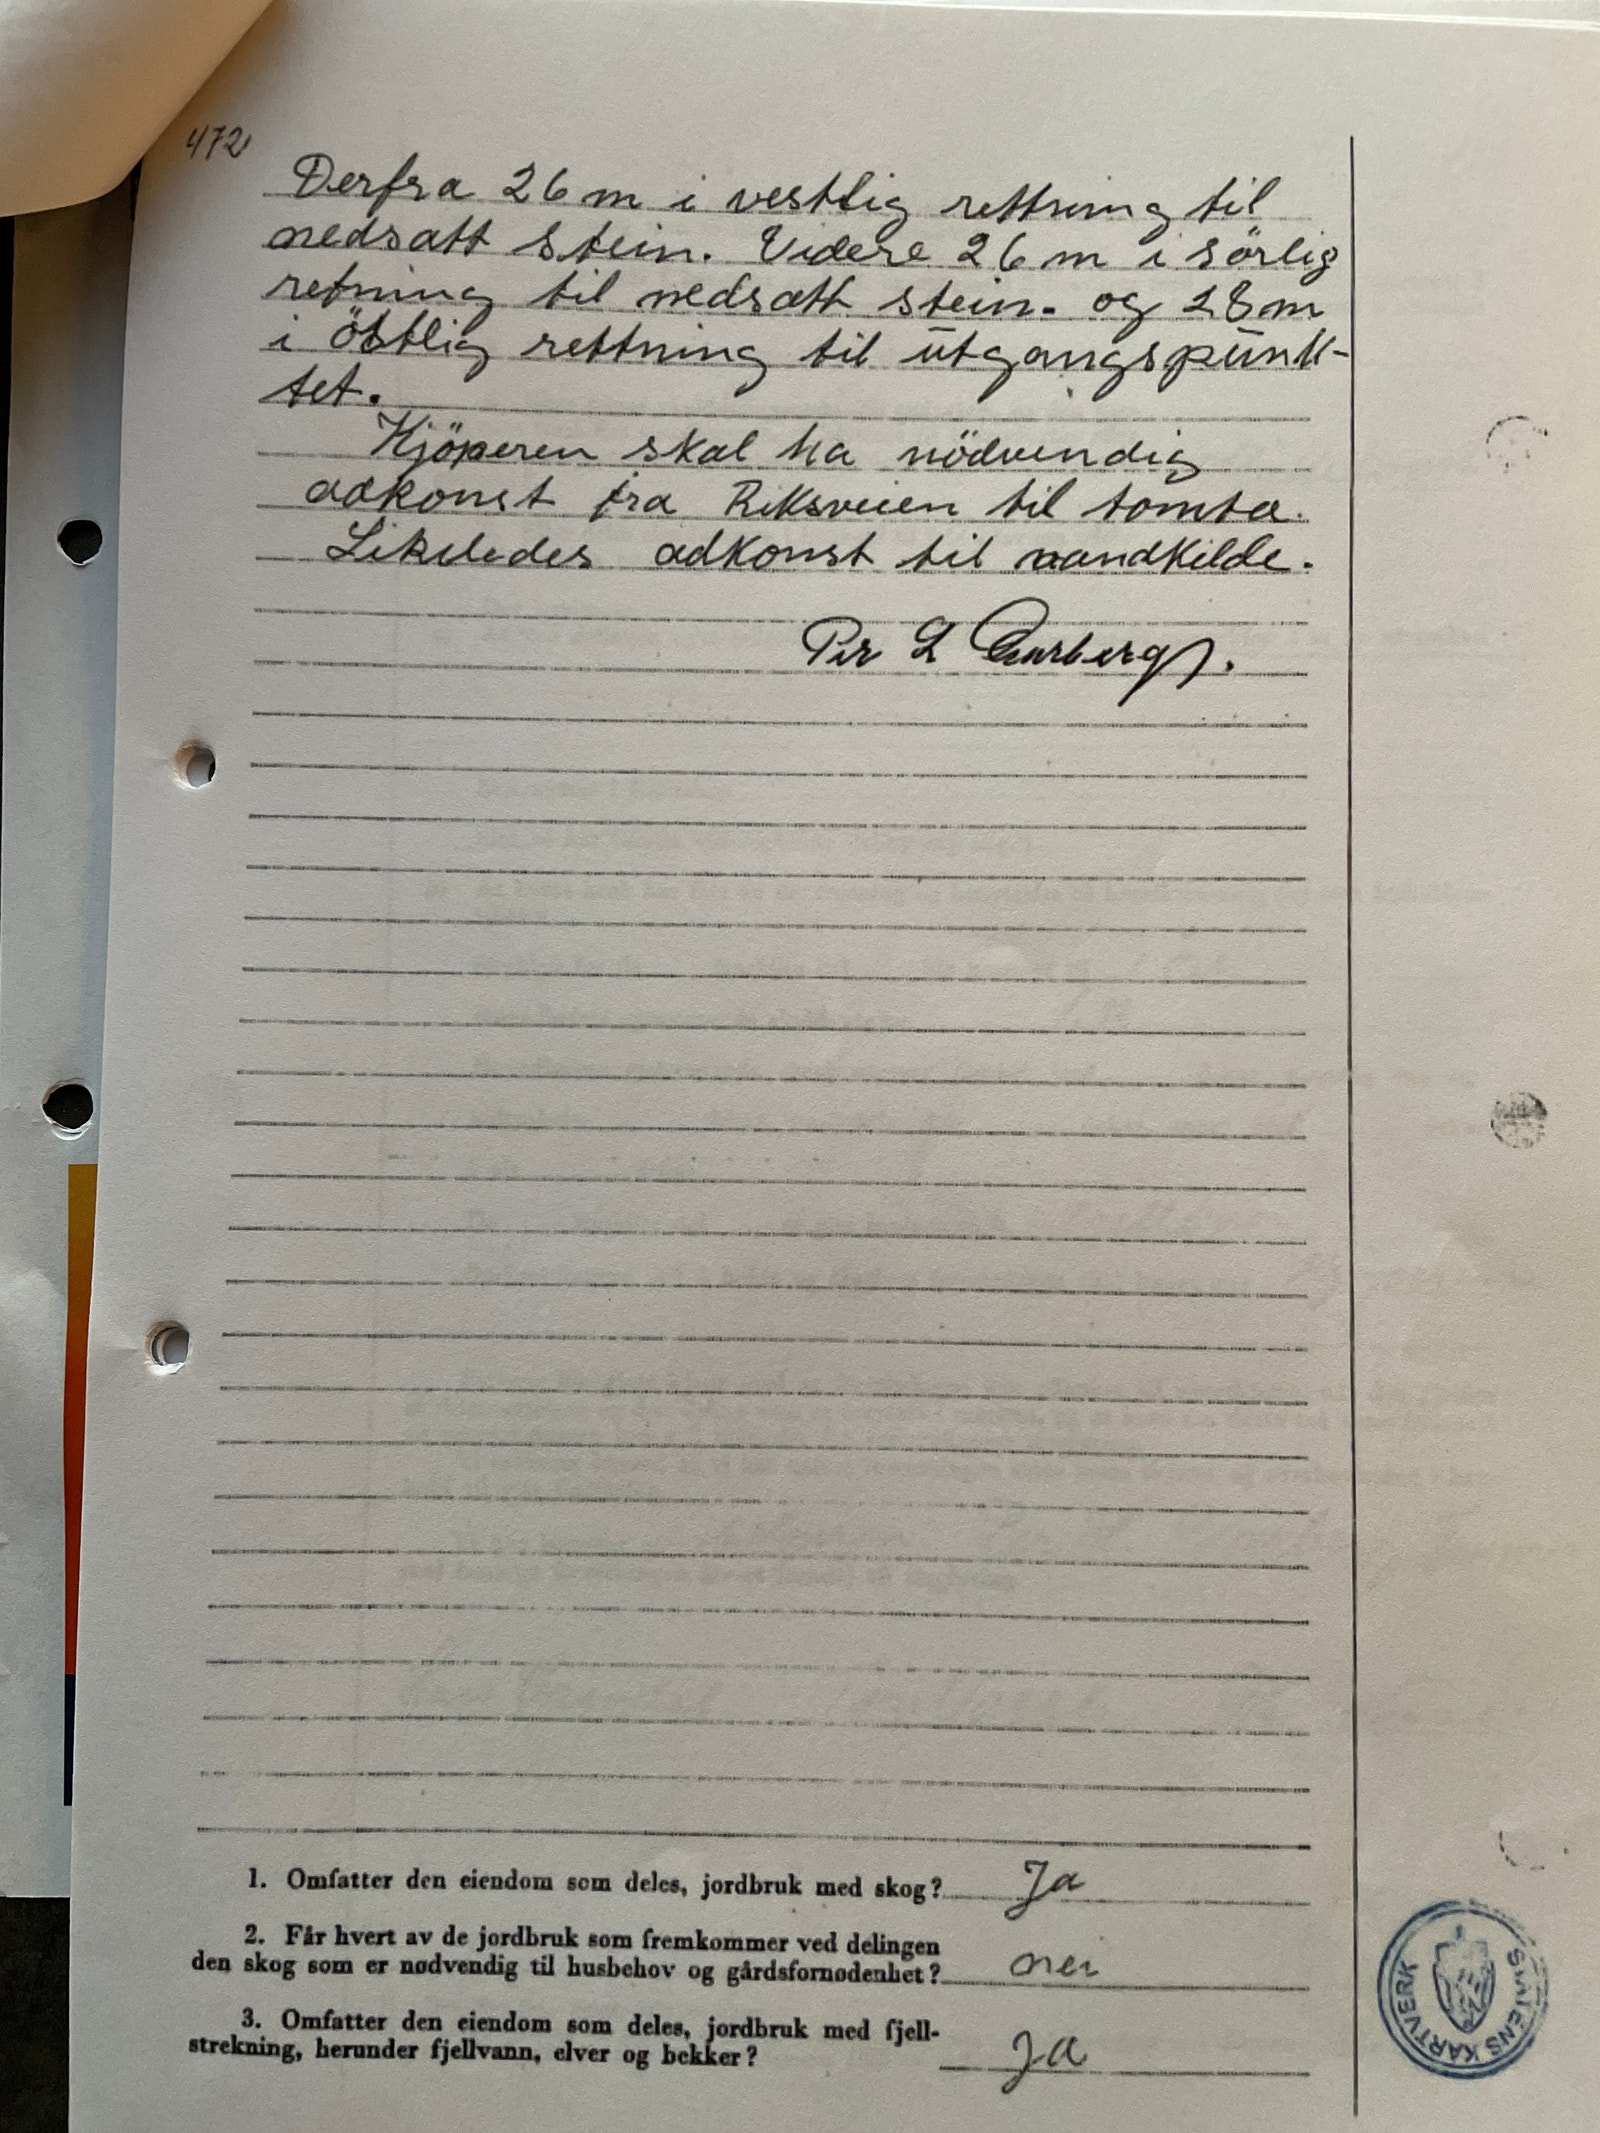 472
Derfra 26 m i vestlig rettning til
nedsatt stein. Videre 26 m i sörlig
retning til nedsatt stein. og 28 m
i östlig rettning til ūtgangspūnk-
tet.
Kjöperen skal ha nödvendig
adkonst fra Riksveien til tomta.
Likeledes adkonst til vandkilde.
Per L
1. Omfatter den eiendom som deles, jordbruk med skog? Ja
2. Får hvert av de jordbruk som fremkommer ved delingen
den skog som er nødvendig til husbehov og gårdsfornødenhet? nei
3. Omfatter den eiendom som deles, jordbruk med fjell-
strekning, herunder fjellvann, elver og bekker? Ja
STATENS KARTVERK